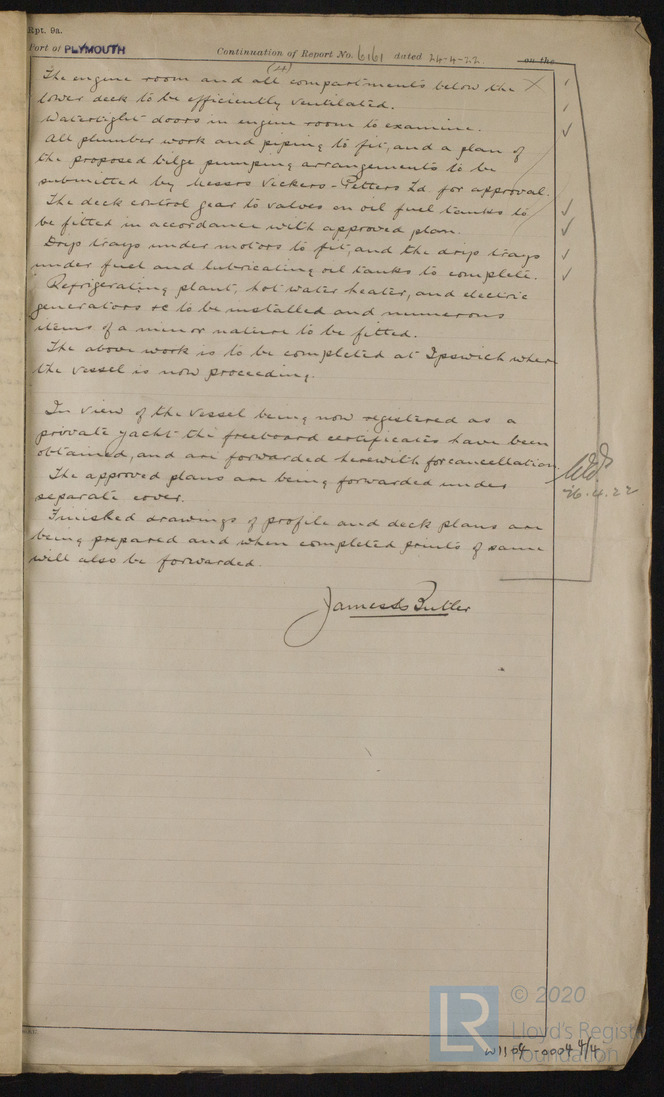 Rpt. 9a.
Port of PLYMOUTH
Continuation of Report No. 6161 dated 24-4-22. on the
(4)
The engine room and all compartments below the
lower deck to be efficiently ventilated.
Watertight doors in engine room to examine.
All plumber work and piping to fit, and a plan of
the proposed bilge pumping arrangements to be
submitted by Messrs Vickers-Petters Ld. for approval.
The deck control gear to valves on oil fuel tanks to
be fitted in accordance with approved plan.
Drip trays under motors to fit, and the drip trays
under fuel and lubricating oil tanks to complete.
Refrigerating plant, hot water heater, and electric
generators &c to be installed and numerous
items of a minor nature to be fitted.
The above work is to be completed at Ipswich where
the vessel is now proceeding.
In view of the vessel being now registered as a
private yacht the freeboard certificates have been
obtained, and are forwarded herewith for cancellation.
The approved plans are being forwarded under
separate cover.
26.4.22
Finished drawings of profile and deck plans are
being prepared and when completed prints of same
will also be forwarded.
James Butler
LR
© 2020
Lloyd's Register
Foundation
W1104-0004 4/4